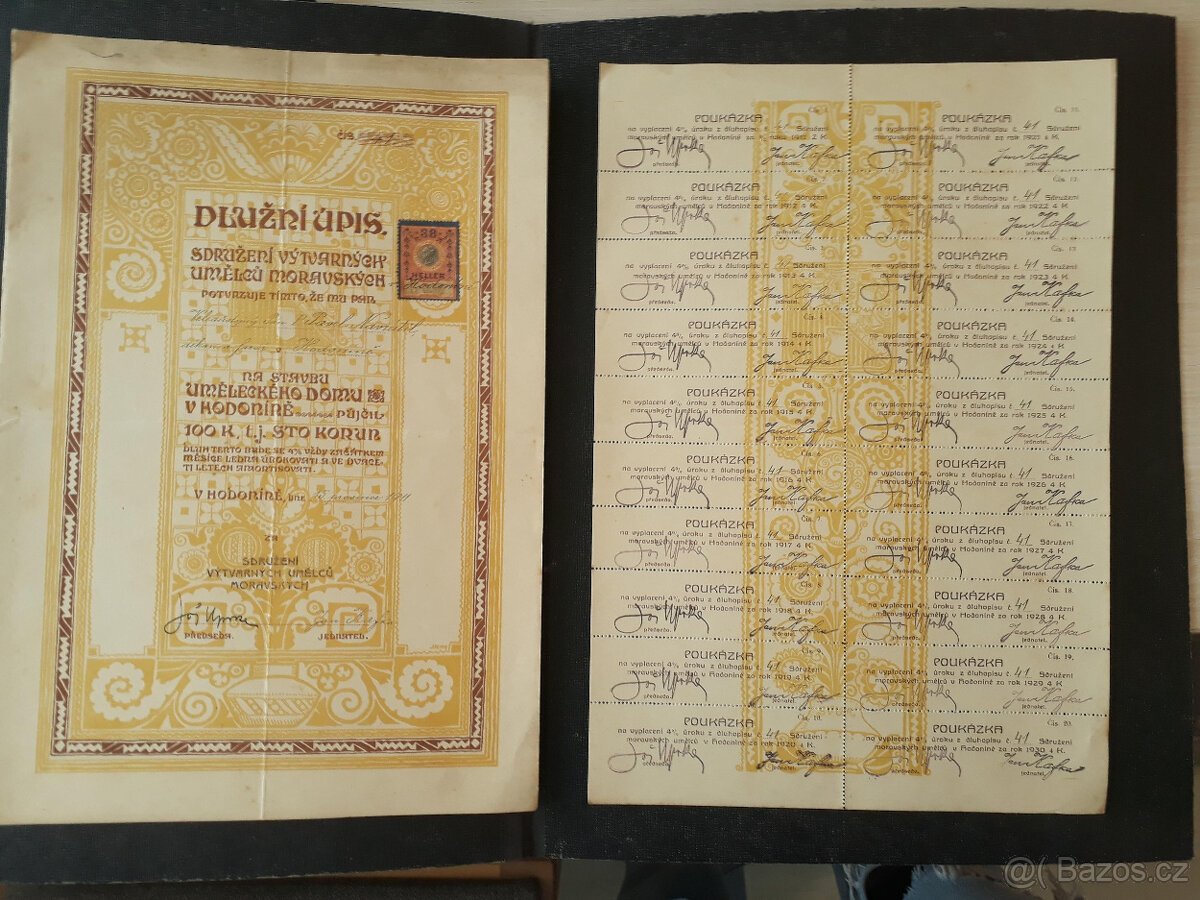 ČÍS.
DLUŽNÍ ÚPIS.
SDRUŽENÍ VÝTVARNÝCH
UMĚLCŮ MORAVSKÝCH
v Hodoníně
POTVRZUJE TÍMTO, ŽE MU PAN
38
HELLER
NA STAVBU
UMĚLECKÉHO DOMU
V HODONÍNĚ PŮJČIL
100 K, t.j. STO KORUN
DLUH TENTO BUDE SE 4% VŽDY ZAČÁTKEM
MĚSÍCE LEDNA ÚROKOVATI A VE DVACE-
TI LETECH AMORTISOVATI.
V HODONÍNĚ, dne
ZA
SDRUŽENÍ
VÝTVARNÝCH UMĚLCŮ
MORAVSKÝCH
Jož Uprka
PŘEDSEDA.
JEDNATEL.
POUKÁZKA
na vyplacení 4% úroku z dluhopisu č. Sdružení
moravských umělců v Hodoníně za rok 1911 4 K.
Jož Uprka předseda. Jan Kafka jednatel.
Čís. 11.
POUKÁZKA
na vyplacení 4% úroku z dluhopisu č. 41 Sdružení
moravských umělců v Hodoníně za rok 1921 4 K.
Jož Uprka předseda. Jan Kafka jednatel.
POUKÁZKA
na vyplacení 4% úroku z dluhopisu č. Sdružení
moravských umělců v Hodoníně za rok 1912 4 K.
Jož Uprka předseda. Jan Kafka jednatel.
Čís. 12.
POUKÁZKA
na vyplacení 4% úroku z dluhopisu č. 41 Sdružení
moravských umělců v Hodoníně za rok 1922 4 K.
Jož Uprka předseda. Jan Kafka jednatel.
Čís. 3.
POUKÁZKA
na vyplacení 4% úroku z dluhopisu č. 41 Sdružení
moravských umělců v Hodoníně za rok 1913 4 K.
Jož Uprka předseda. Jan Kafka jednatel.
Čís. 13.
POUKÁZKA
na vyplacení 4% úroku z dluhopisu č. 41 Sdružení
moravských umělců v Hodoníně za rok 1923 4 K.
Jož Uprka předseda. Jan Kafka jednatel.
Čís. 4.
POUKÁZKA
na vyplacení 4% úroku z dluhopisu č. 41 Sdružení
moravských umělců v Hodoníně za rok 1914 4 K.
Jož Uprka předseda. Jan Kafka jednatel.
Čís. 14.
POUKÁZKA
na vyplacení 4% úroku z dluhopisu č. 41 Sdružení
moravských umělců v Hodoníně za rok 1924 4 K.
Jož Uprka předseda. Jan Kafka jednatel.
Čís. 5.
POUKÁZKA
na vyplacení 4% úroku z dluhopisu č. 41 Sdružení
moravských umělců v Hodoníně za rok 1915 4 K.
Jož Uprka předseda. Jan Kafka jednatel.
Čís. 15.
POUKÁZKA
na vyplacení 4% úroku z dluhopisu č. 41 Sdružení
moravských umělců v Hodoníně za rok 1925 4 K.
Jož Uprka předseda. Jan Kafka jednatel.
Čís. 6.
POUKÁZKA
na vyplacení 4% úroku z dluhopisu č. 41 Sdružení
moravských umělců v Hodoníně za rok 1916 4 K.
Jož Uprka předseda. Jan Kafka jednatel.
Čís. 16.
POUKÁZKA
na vyplacení 4% úroku z dluhopisu č. 41 Sdružení
moravských umělců v Hodoníně za rok 1926 4 K.
Jož Uprka předseda. Jan Kafka jednatel.
Čís. 7.
POUKÁZKA
na vyplacení 4% úroku z dluhopisu č. 41 Sdružení
moravských umělců v Hodoníně za rok 1917 4 K.
Jož Uprka předseda. Jan Kafka jednatel.
Čís. 17.
POUKÁZKA
na vyplacení 4% úroku z dluhopisu č. 41 Sdružení
moravských umělců v Hodoníně za rok 1927 4 K.
Jož Uprka předseda. Jan Kafka jednatel.
Čís. 8.
POUKÁZKA
na vyplacení 4% úroku z dluhopisu č. 41 Sdružení
moravských umělců v Hodoníně za rok 1918 4 K.
Jož Uprka předseda. Jan Kafka jednatel.
Čís. 18.
POUKÁZKA
na vyplacení 4% úroku z dluhopisu č. 41 Sdružení
moravských umělců v Hodoníně za rok 1928 4 K.
Jož Uprka předseda. Jan Kafka jednatel.
Čís. 9.
POUKÁZKA
na vyplacení 4% úroku z dluhopisu č. 41 Sdružení
moravských umělců v Hodoníně za rok 1919 4 K.
Jož Uprka předseda. Jan Kafka jednatel.
Čís. 19.
POUKÁZKA
na vyplacení 4% úroku z dluhopisu č. 41 Sdružení
moravských umělců v Hodoníně za rok 1929 4 K.
Jož Uprka předseda. Jan Kafka jednatel.
Čís. 10.
POUKÁZKA
na vyplacení 4% úroku z dluhopisu č. 41 Sdružení
moravských umělců v Hodoníně za rok 1920 4 K.
Jož Uprka předseda. Jan Kafka jednatel.
Čís. 20.
POUKÁZKA
na vyplacení 4% úroku z dluhopisu č. 41 Sdružení
moravských umělců v Hodoníně za rok 1930 4 K.
Jož Uprka předseda. Jan Kafka jednatel.
@( Bazos.cz